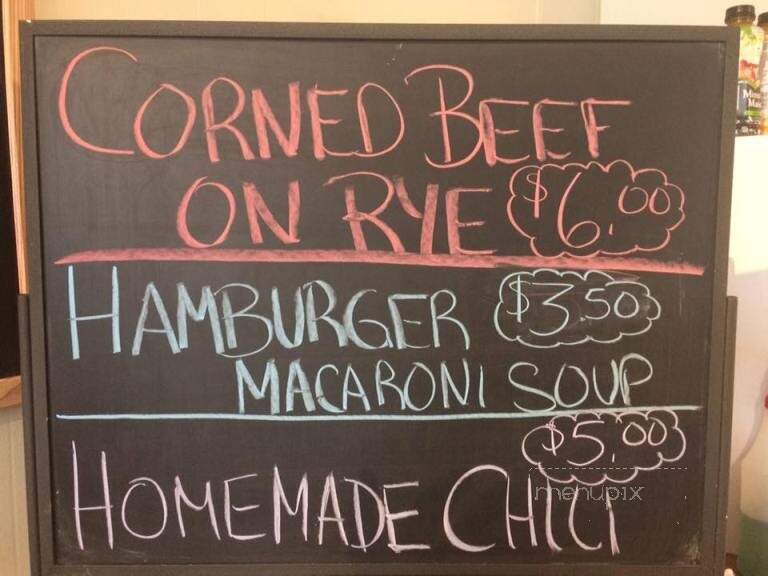 CORNED BEEF
ON RYE $6.00
HAMBURGER $3.50
MACARONI SOUP
$5.00
HOMEMADE CHILI
menupix